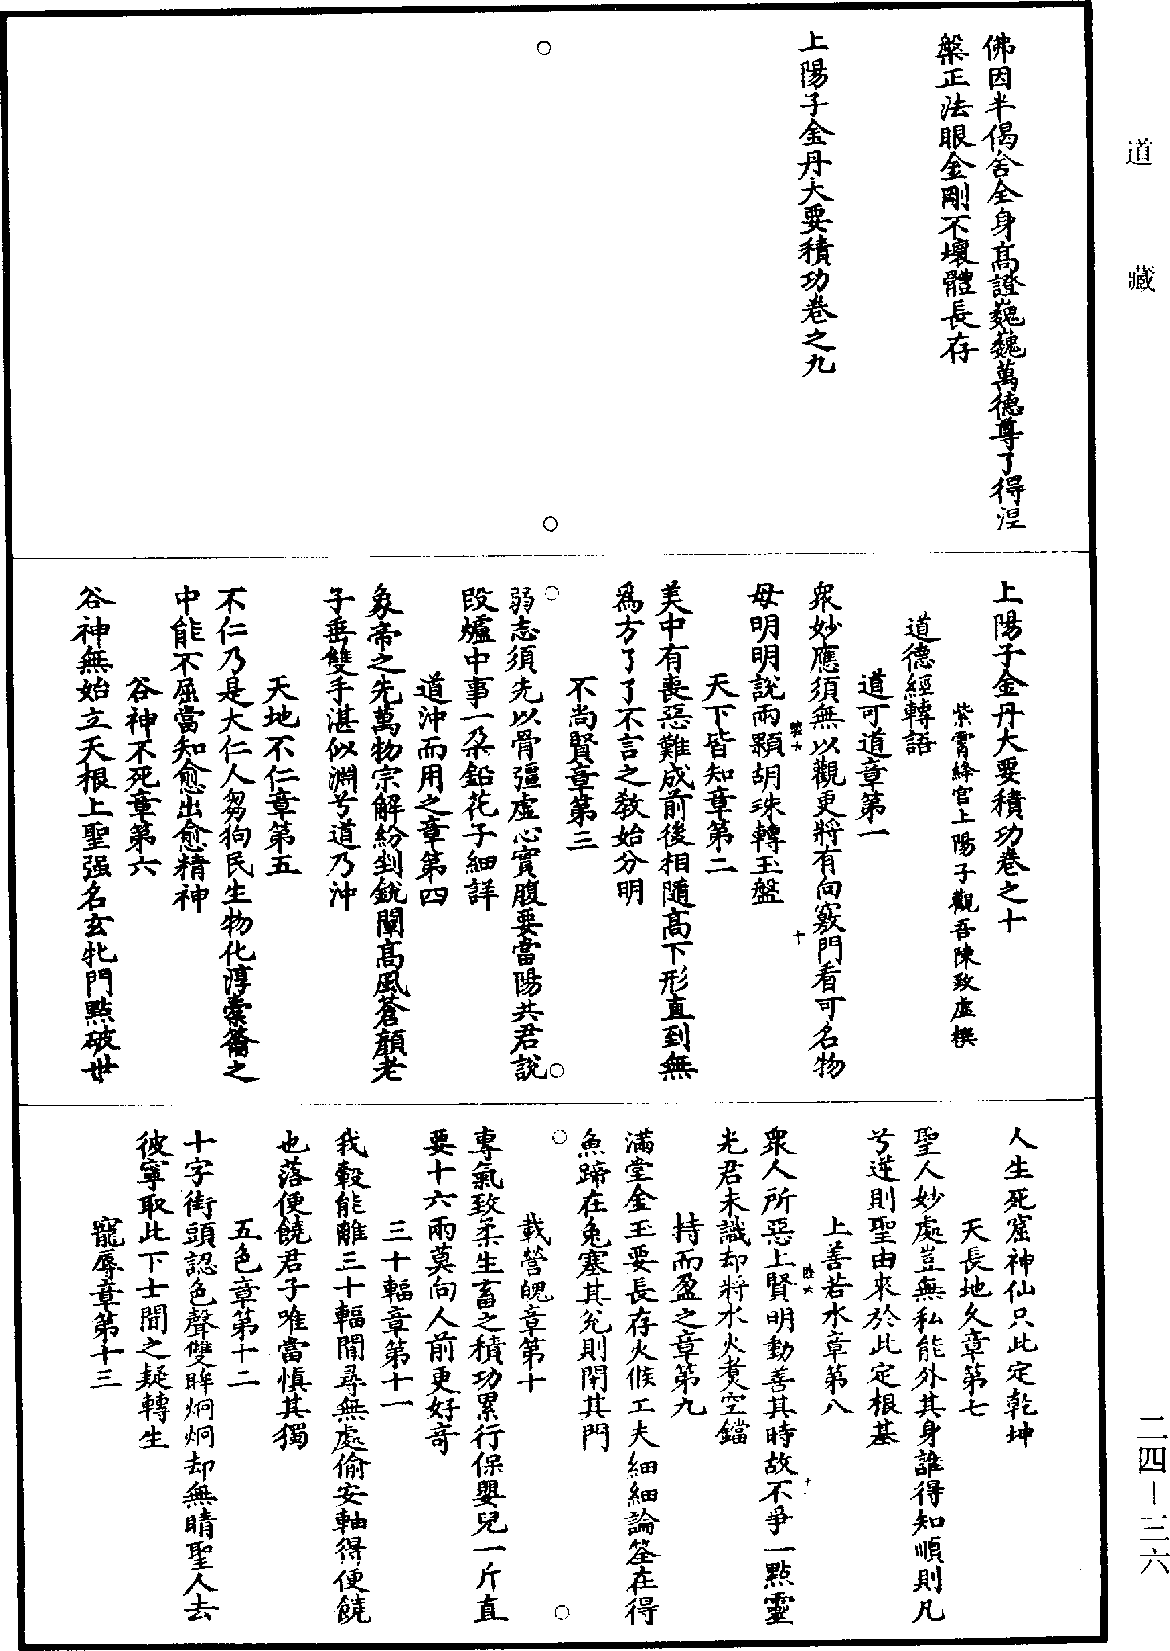 道藏
佛因半偈舍全身髙證巍巍萬德尊了得涅
槃正法眼金剛不壞體長存
上陽子金丹大要積功卷之九
上陽子金丹大要積功卷之十
紫霄絳宫上陽子觀吾陳致虛撰
道德經轉語
道可道章第一
衆妙應須無以觀更將有向竅門看可名物
母明明說兩顆胡珠轉玉盤
天下皆知章第二
美中有䘮惡難成前後相隨高下形直到無
爲方了了不言之敎始分明
不尚賢章第三
弱志須先以骨彊虛心實腹要當陽共君說
叚爐中事一朶鉛花子細詳
道沖而用之章第四
象帝之先萬物宗解紛剉銳闡髙風蒼顔老
子垂雙手湛似淵兮道乃沖
天地不仁章第五
不仁乃是大仁人芻狗民生物化淳槖籥之
中能不屈當知愈出愈精神
谷神不死章第六
谷神無始立天根上聖强名玄牝門點破世
人生死窟神仙只此定乾坤
天長地久章第七
聖人妙處豈無私能外其身誰得知順則凡
兮逆則聖由來於此定根基
上善若水章第八
衆人所惡上賢明動善其時故不爭一點靈
光君未識却將水火煑空鐺
持而盈之章第九
滿堂金玉要長存火候工夫細細論筌在得
魚蹄在兔塞其兊則閉其門
載營魄章第十
專氣致柔生畜之積功累行保嬰兒一斤直
要十六兩莫向人前更好奇
三十輻章第十一
我轂能離三十輻閒尋無處偷安軸得便饒
也落便饒君子唯當慎其獨
五色章第十二
十字街頭認色聲雙眸炯炯却無睛聖人去
彼寧取此下士聞之疑轉生
寵辱章第十三
二四－三六